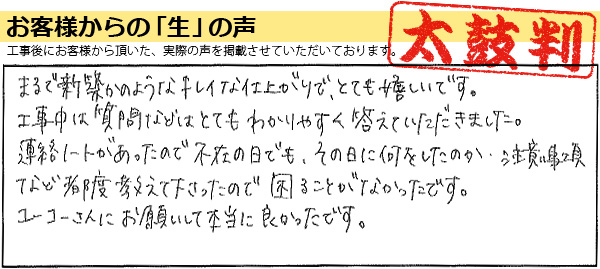 お客様からの「生」の声
太鼓判
工事後にお客様から頂いた、実際の声を掲載させていただいております。
まるで新築かのようなキレイな仕上がりで、とても嬉しいです。
工事中は質問などはとてもわかりやすく答えていただきました。
連絡ノートがあったので不在の日でも、その日に何をしたのか・注意事項
など都度教えて下さったので困ることがなかったです。
ユーコーさんにお願いして本当に良かったです。